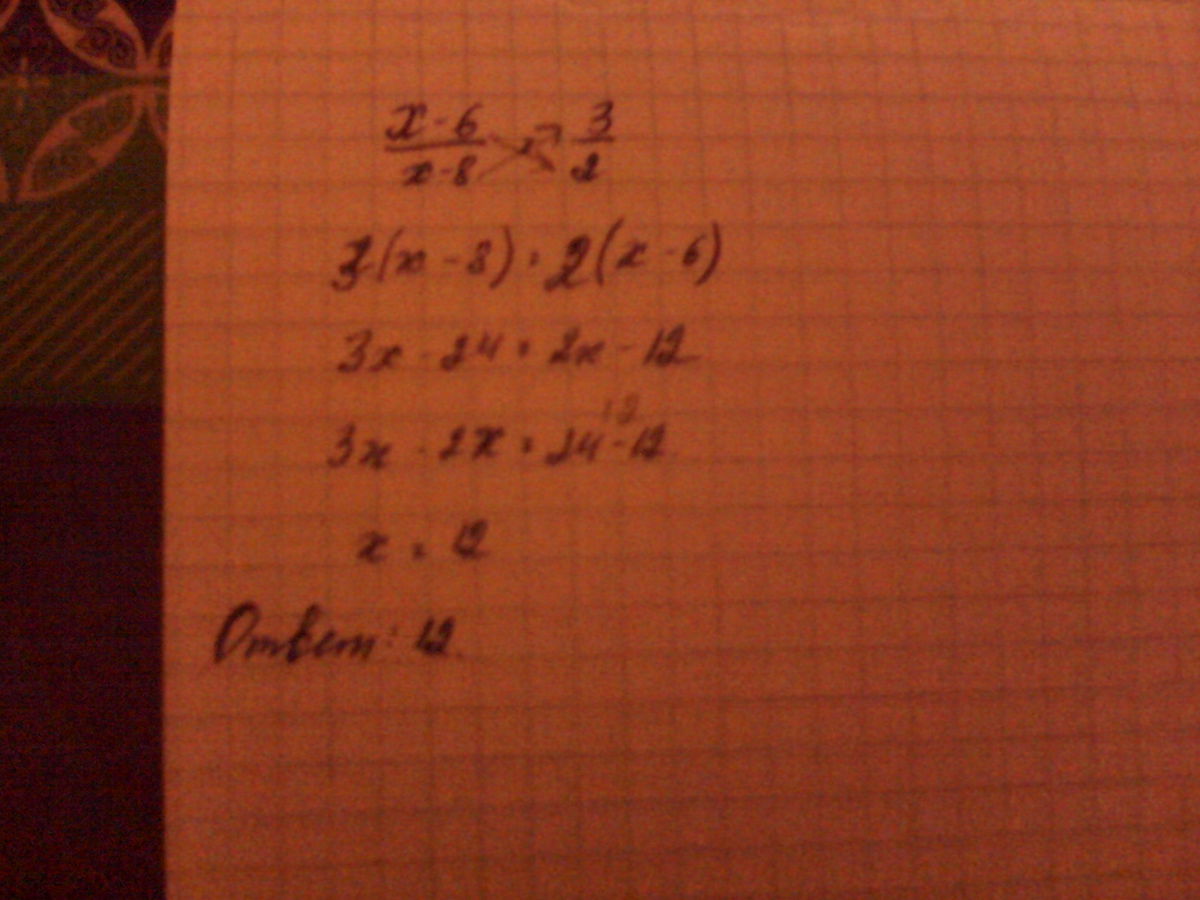 x-6/x-8 = 3/2
3(x-8) = 2(x-6)
3x-24 = 2x-12
12
3x-2x = 24-12
x = 12
Ответ: 12